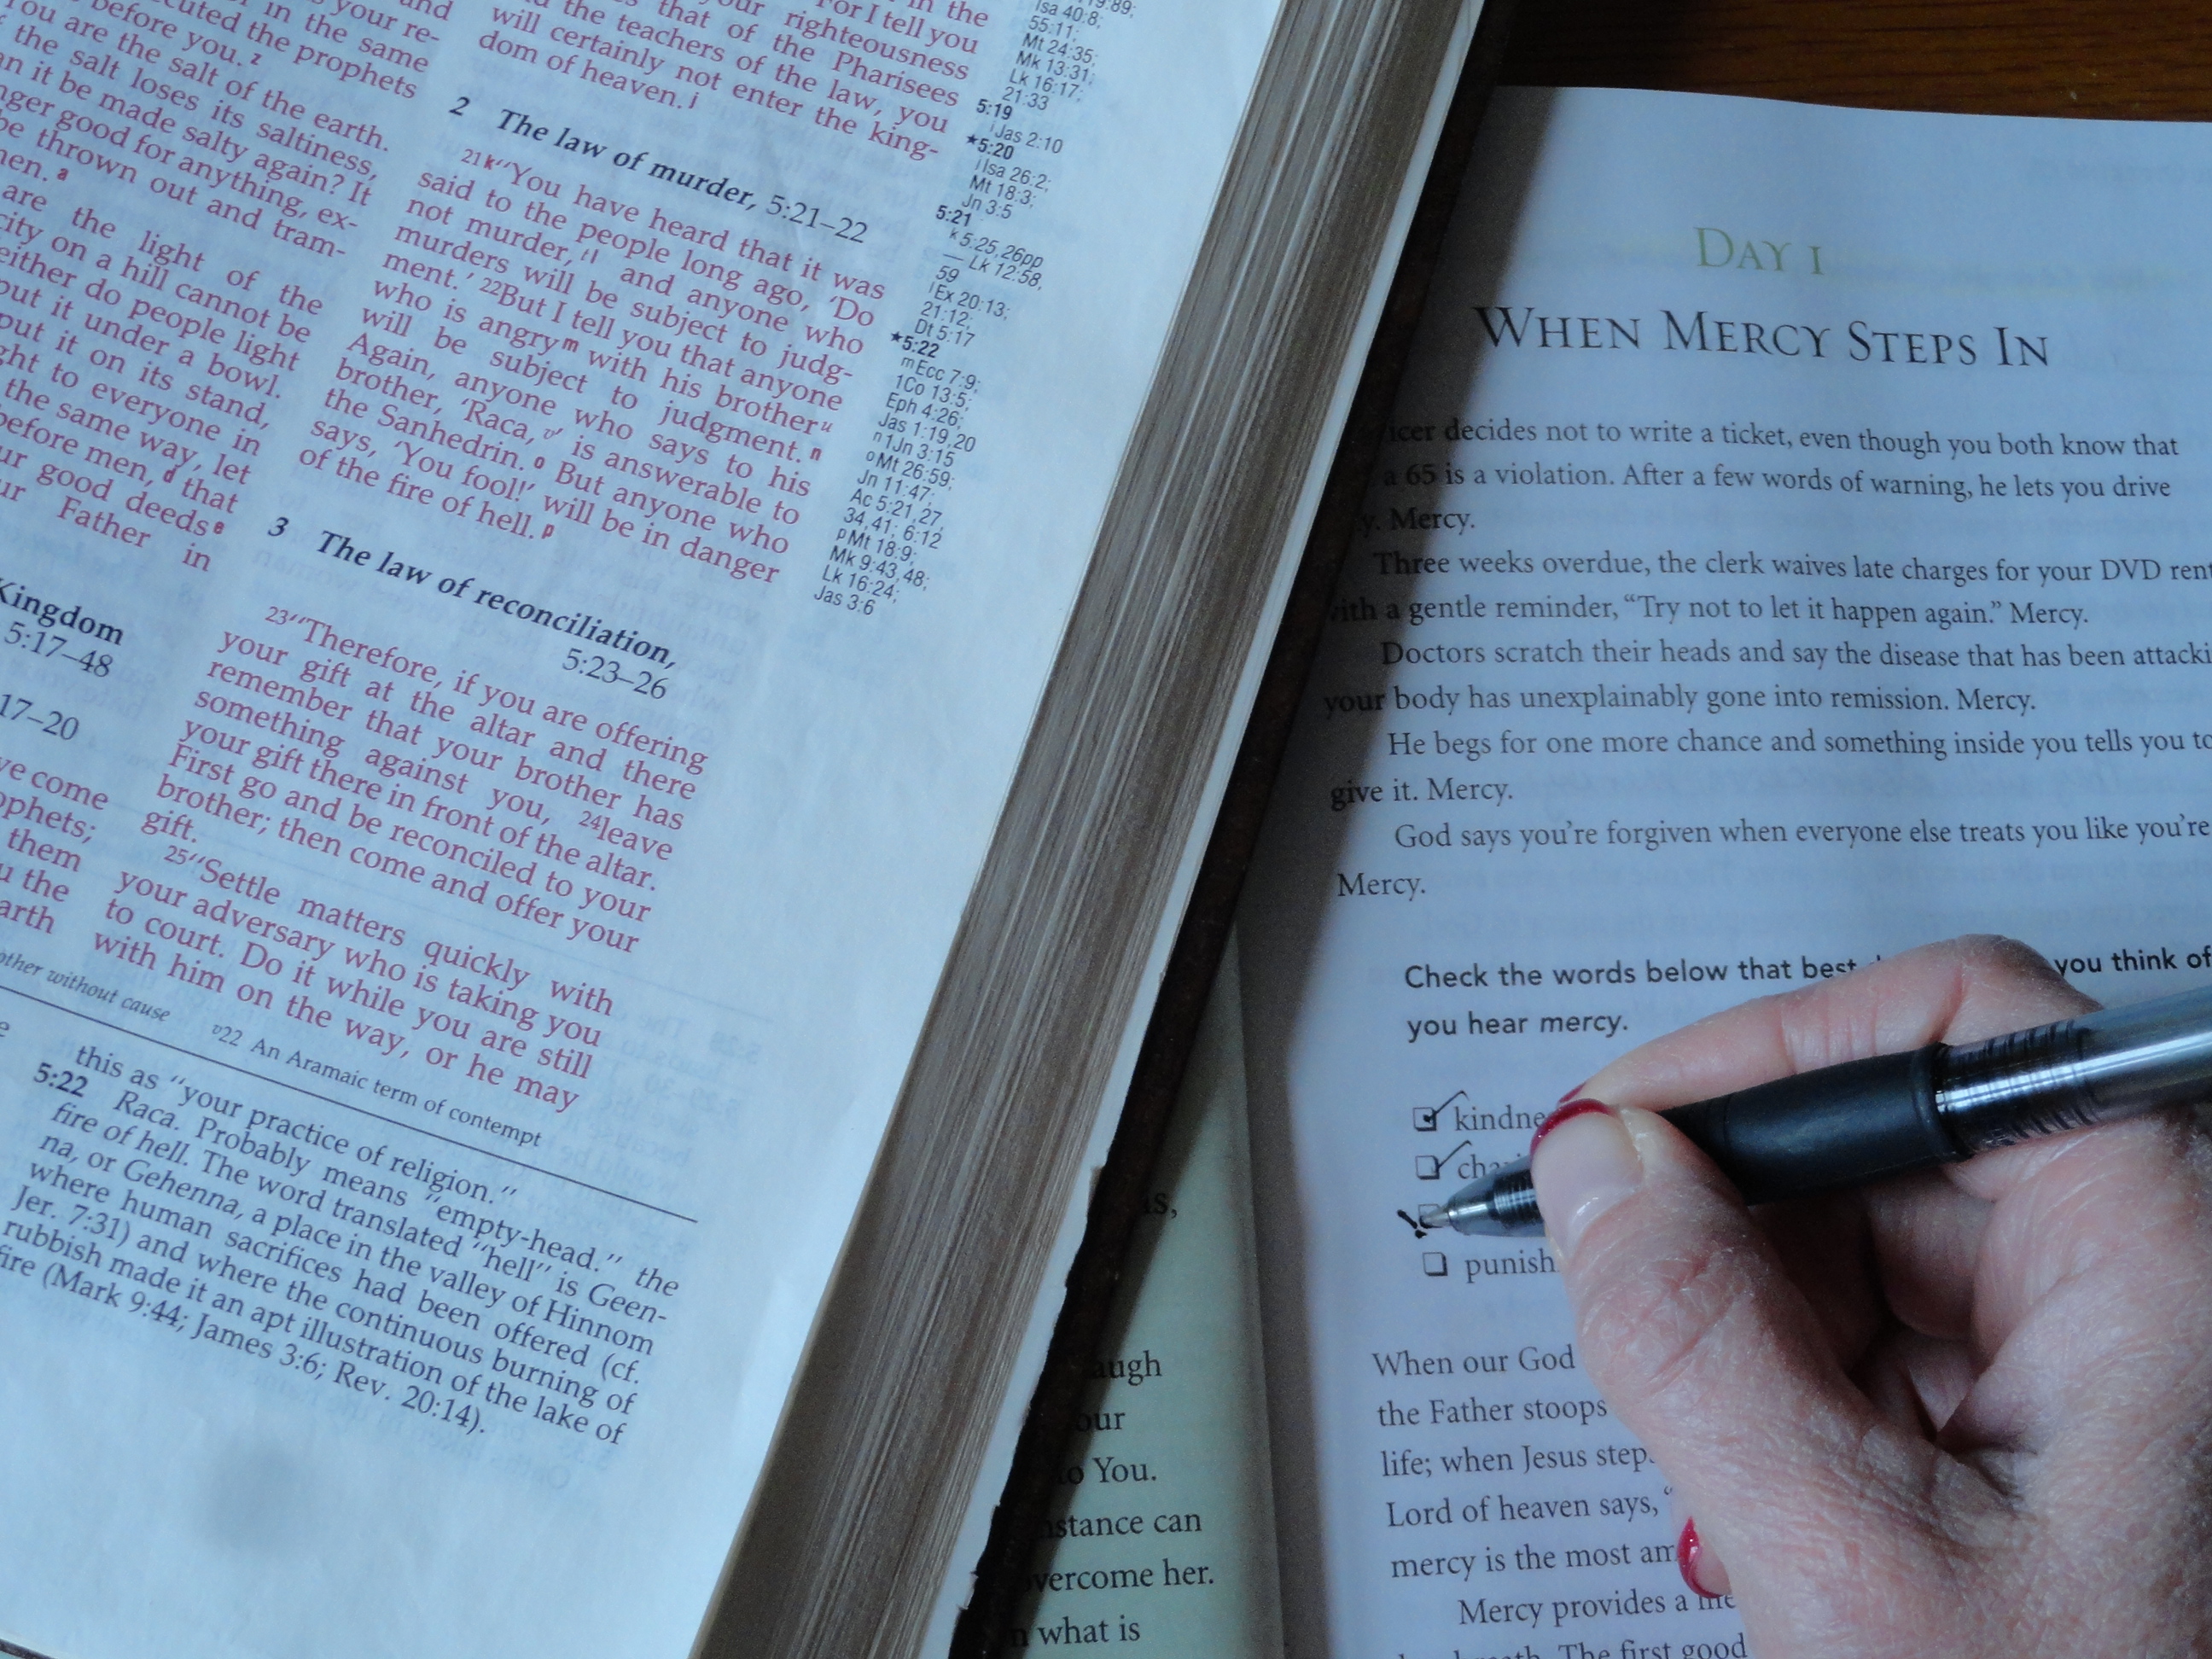 and
your re-
or in the same
cuted the prophets
before you. z
ou are the salt of the earth.
the salt loses its saltiness,
n it be made salty again? It
nger good for anything, ex-
be thrown out and tram-
men. a
are the light of the
city on a hill cannot be
either do people light
put it under a bowl.
put it on its stand,
ght to everyone in
the same way, let
before men, d that
ur good deeds e
ur Father in
Kingdom
5:17–48
17–20
ve come
ophets;
them
u the
arth
in the
For I tell you
your righteousness
that of the Pharisees
the teachers of the law, you
will certainly not enter the king-
dom of heaven. j
2 The law of murder, 5:21–22
21 k “You have heard that it was
said to the people long ago, ‘Do
not murder, ’l and anyone who
murders will be subject to judg-
ment.’ 22But I tell you that anyone
who is angry m with his brother u
will be subject to judgment. n
Again, anyone who says to his
brother, ‘Raca, v’ is answerable to
the Sanhedrin. o But anyone who
says, ‘You fool!’ will be in danger
of the fire of hell. p
3 The law of reconciliation,
5:23–26
23“Therefore, if you are offering
your gift at the altar and there
remember that your brother has
something against you, 24leave
your gift there in front of the altar.
First go and be reconciled to your
brother; then come and offer your
gift.
25“Settle matters quickly with
your adversary who is taking you
to court. Do it while you are still
with him on the way, or he may
other without cause v22 An Aramaic term of contempt
this as “your practice of religion.”
5:22 Raca. Probably means “empty-head.” the
fire of hell. The word translated “hell” is Geen-
na, or Gehenna, a place in the valley of Hinnom
where human sacrifices had been offered (cf.
Jer. 7:31) and where the continuous burning of
rubbish made it an apt illustration of the lake of
fire (Mark 9:44; James 3:6; Rev. 20:14).
Isa 40:8;
55:11;
Mt 24:35;
Mk 13:31;
Lk 16:17;
21:33
5:19
i Jas 2:10
★5:20
j Isa 26:2;
Mt 18:3;
Jn 3:5
5:21
k 5:25,26pp
— Lk 12:58,
59
l Ex 20:13;
21:12;
Dt 5:17
★5:22
m Ecc 7:9;
1Co 13:5;
Eph 4:26;
Jas 1:19,20
n 1Jn 3:15
o Mt 26:59;
Jn 11:47;
Ac 5:21,27,
34,41; 6:12
p Mt 18:9;
Mk 9:43,48;
Lk 16:24;
Jas 3:6
augh
our
to You.
stance can
vercome her.
what is
DAY 1
WHEN MERCY STEPS IN
icer decides not to write a ticket, even though you both know that
a 65 is a violation. After a few words of warning, he lets you drive
y. Mercy.
Three weeks overdue, the clerk waives late charges for your DVD rent
with a gentle reminder, “Try not to let it happen again.” Mercy.
Doctors scratch their heads and say the disease that has been attacki
your body has unexplainably gone into remission. Mercy.
He begs for one more chance and something inside you tells you to
give it. Mercy.
God says you’re forgiven when everyone else treats you like you’re
Mercy.
Check the words below that best you think of
you hear mercy.
kindne
cha
punish
When our God
the Father stoops
life; when Jesus step
Lord of heaven says, “
mercy is the most am
Mercy provides a me
The first good